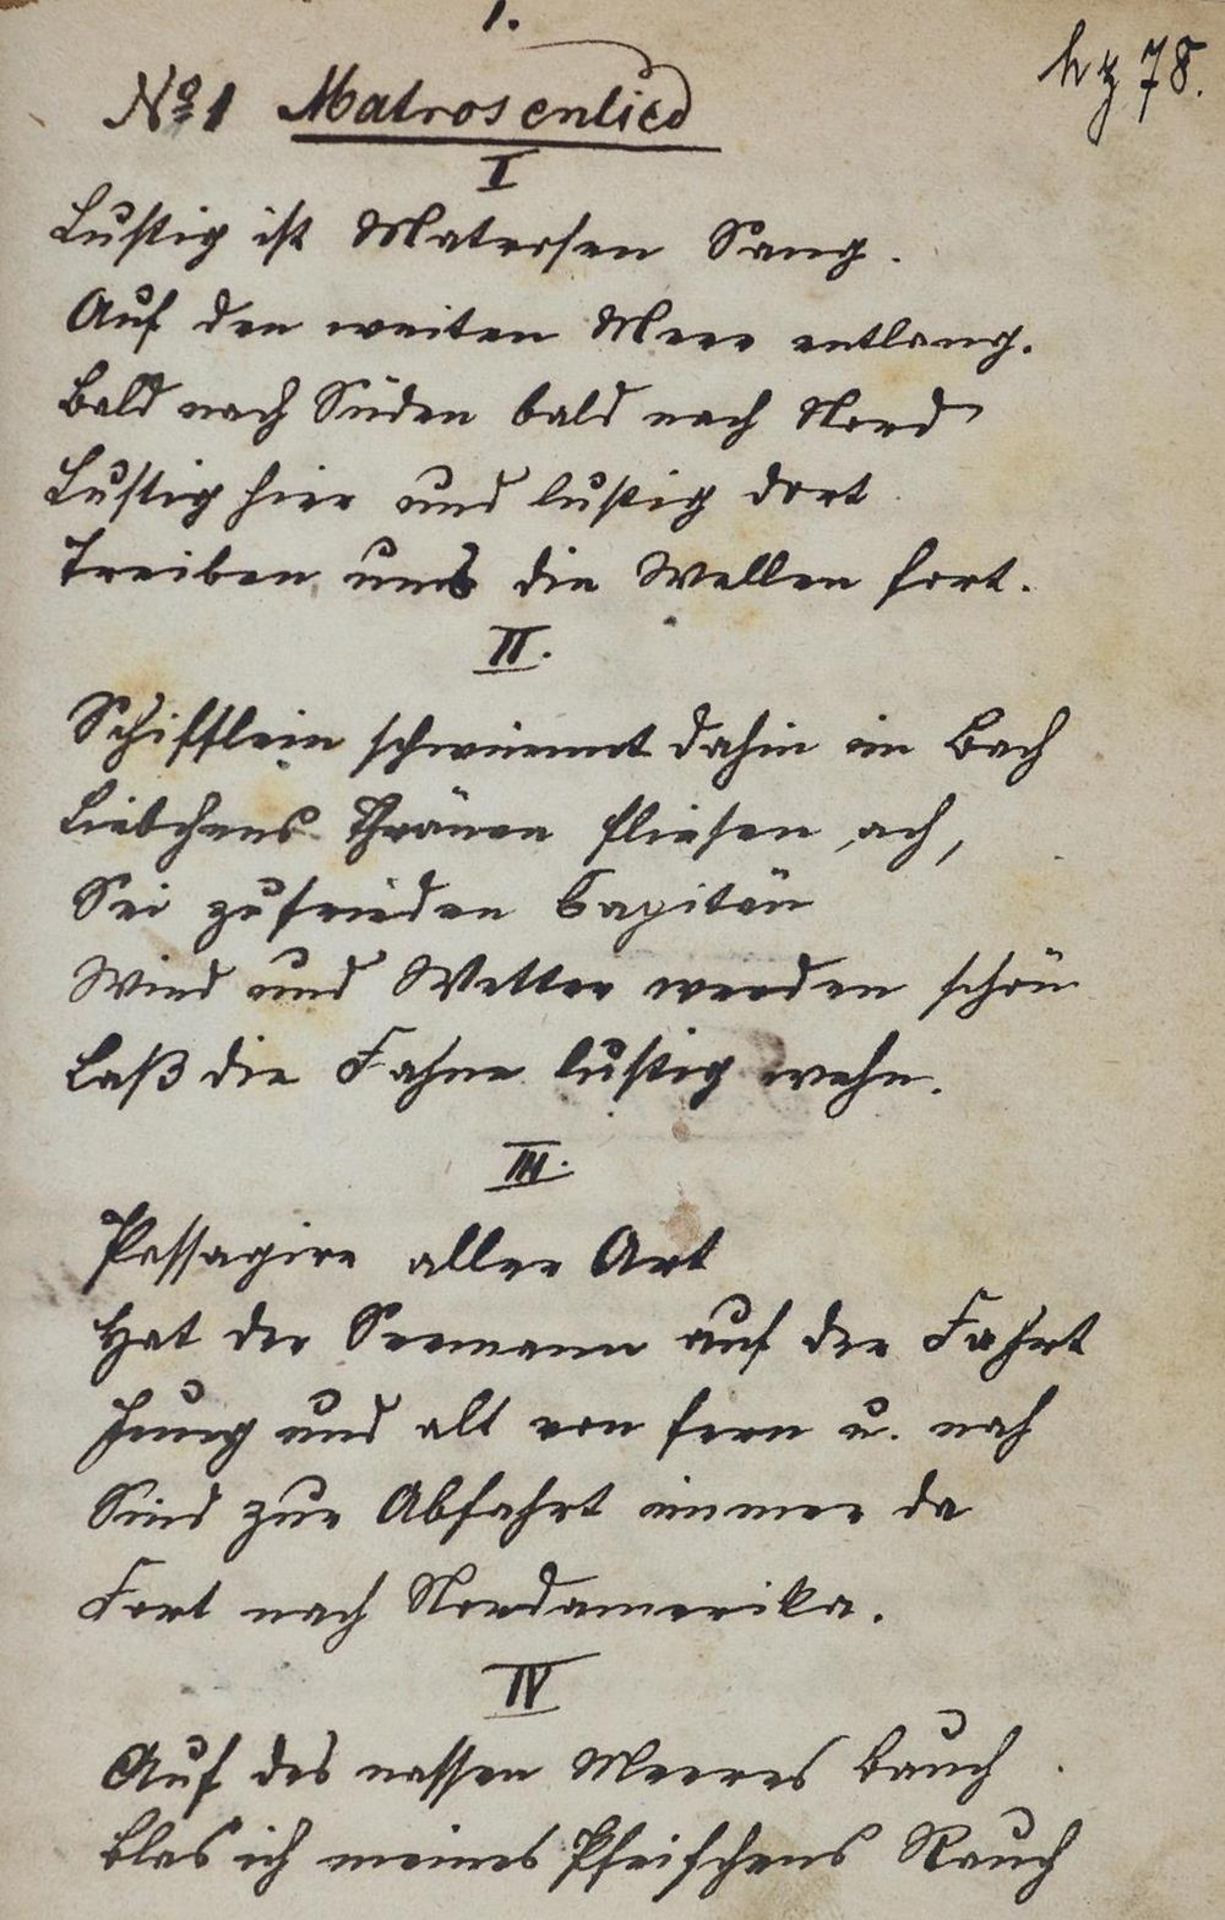 1.
hz 78.
No 1 Matrosenlied
I
Lustig ist Matrosen Sang.
Auf den weiten Meer entlang.
Bald nach Süden bald nach Nord
Lustig hier und lustig dort
Treiben uns die Wellen fort.
II.
Schifflein schwimmt dahin im Bach
Liebchens Thränen fliesen ach,
Sei zufrieden Capitän
Wind und Wetter werden schön
Laß die Fahne lustig wehn.
III.
Passagire aller Art
Hat der Seemann auf der Fahrt
Jung und alt von fern u. nah
Sind zur Abfahrt immer da
Fort nach Nordamerika.
IV
Auf des nassen Meeres Bauch
Blas ich meines Pfeifchens Rauch